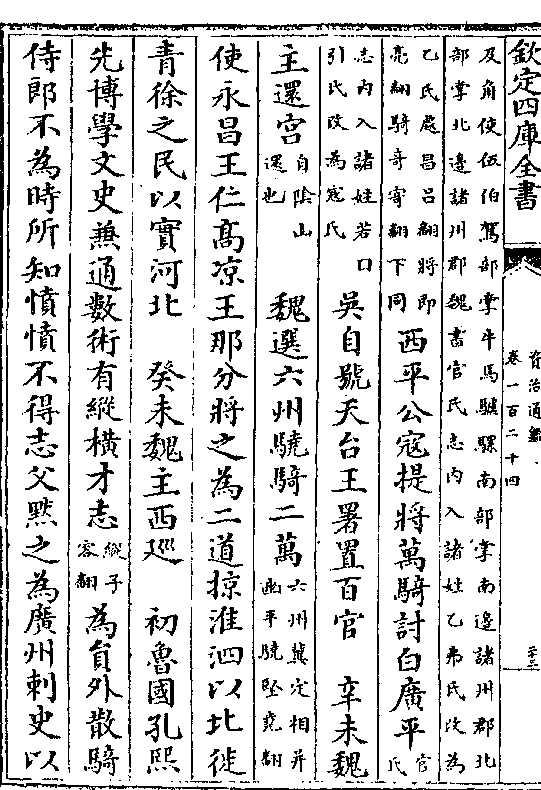 欽定四庫全書
資治通鑑
卷一百二十四
二十三
及角使伍伯駕部掌牛馬驢騾南部掌南邊諸州郡北
部掌北邊諸州郡魏書官氏志内入諸姓乙弗氏改為
乙氏處昌吕翻將即
亮翻騎奇寄翻下同
西平公寇提將萬騎討白廣平
官氏
志内入諸姓若口
引氏改為寇氏
吳自號天台王署置百官　辛未魏
主還宫
自陰山
還也
魏選六州驍騎二萬
六州冀定相并
幽平驍堅堯翻
使永昌王仁高凉王那分將之為二道掠淮泗以北徙
青徐之民以實河北　癸未魏主西廵　初魯國孔熙
先博學文史兼通數術有縱横才志
縱子
容翻
為員外散騎
侍郎不為時所知憤憤不得志父黙之為廣州刺史以